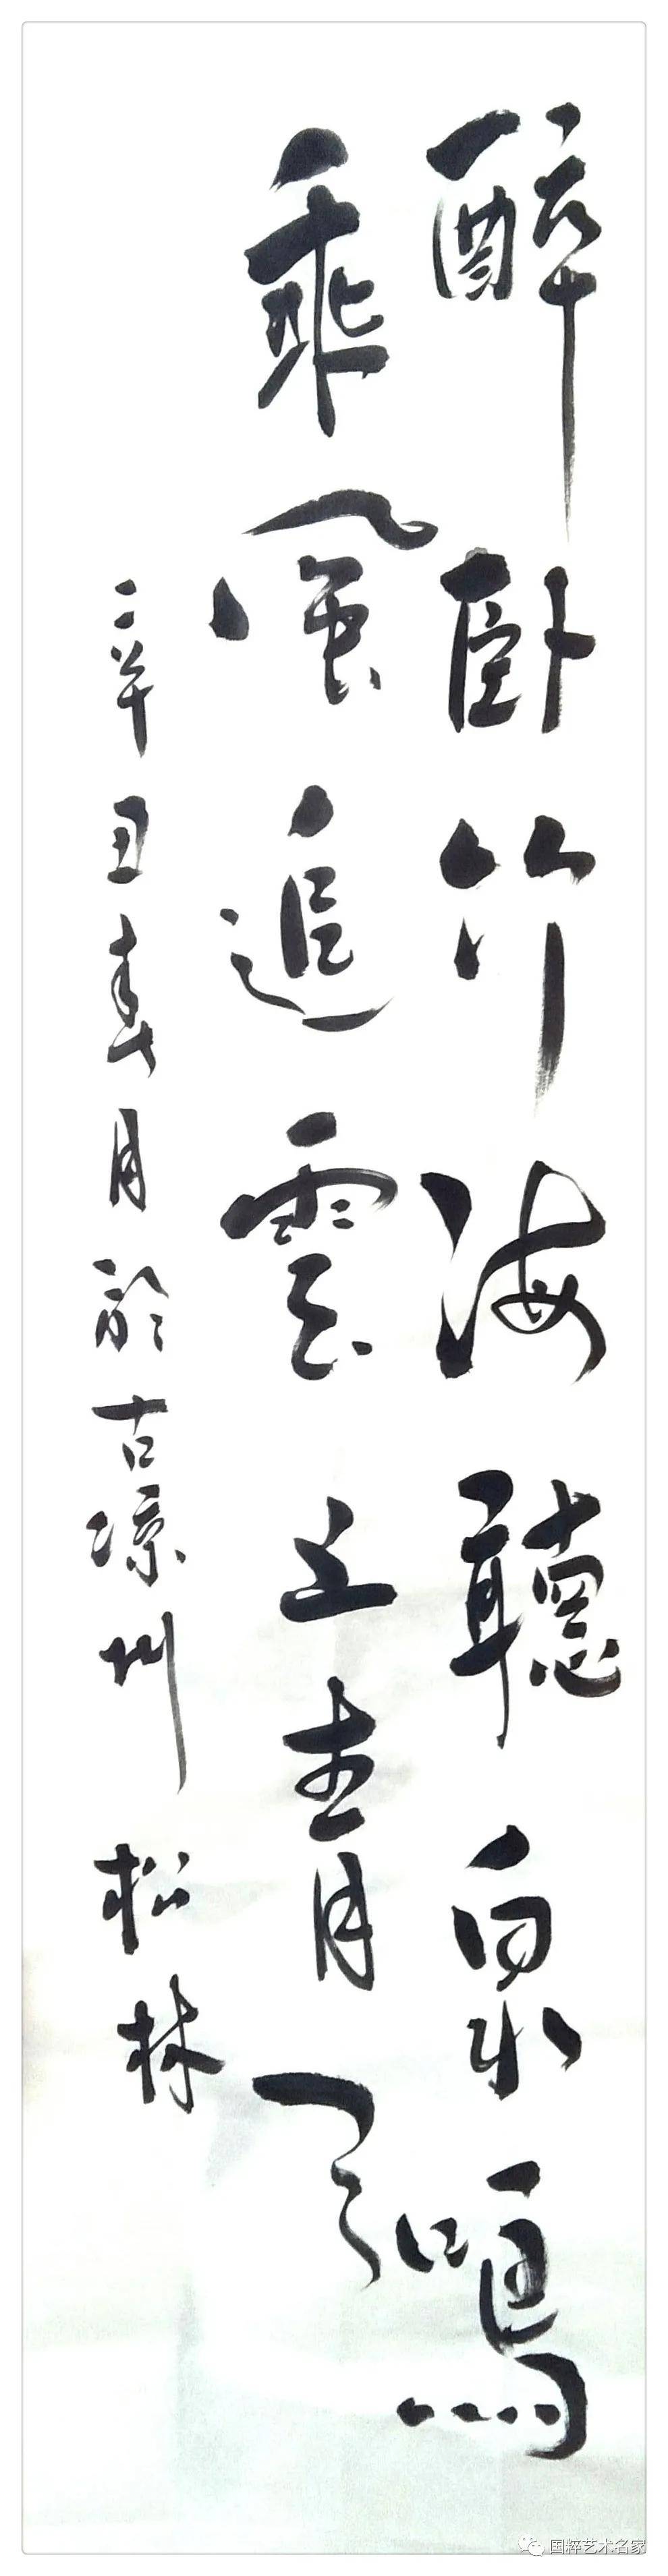 醉卧竹海聽泉鳴
乘風追雲上青天
辛丑春月於古凉州松林
国粹艺术名家